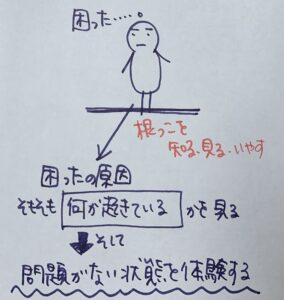 困った‥‥。
根っこを
知る・見る・いやす
困ったの原因
そもそも 何が起きている かを見る
そして
問題がない状態を体験する